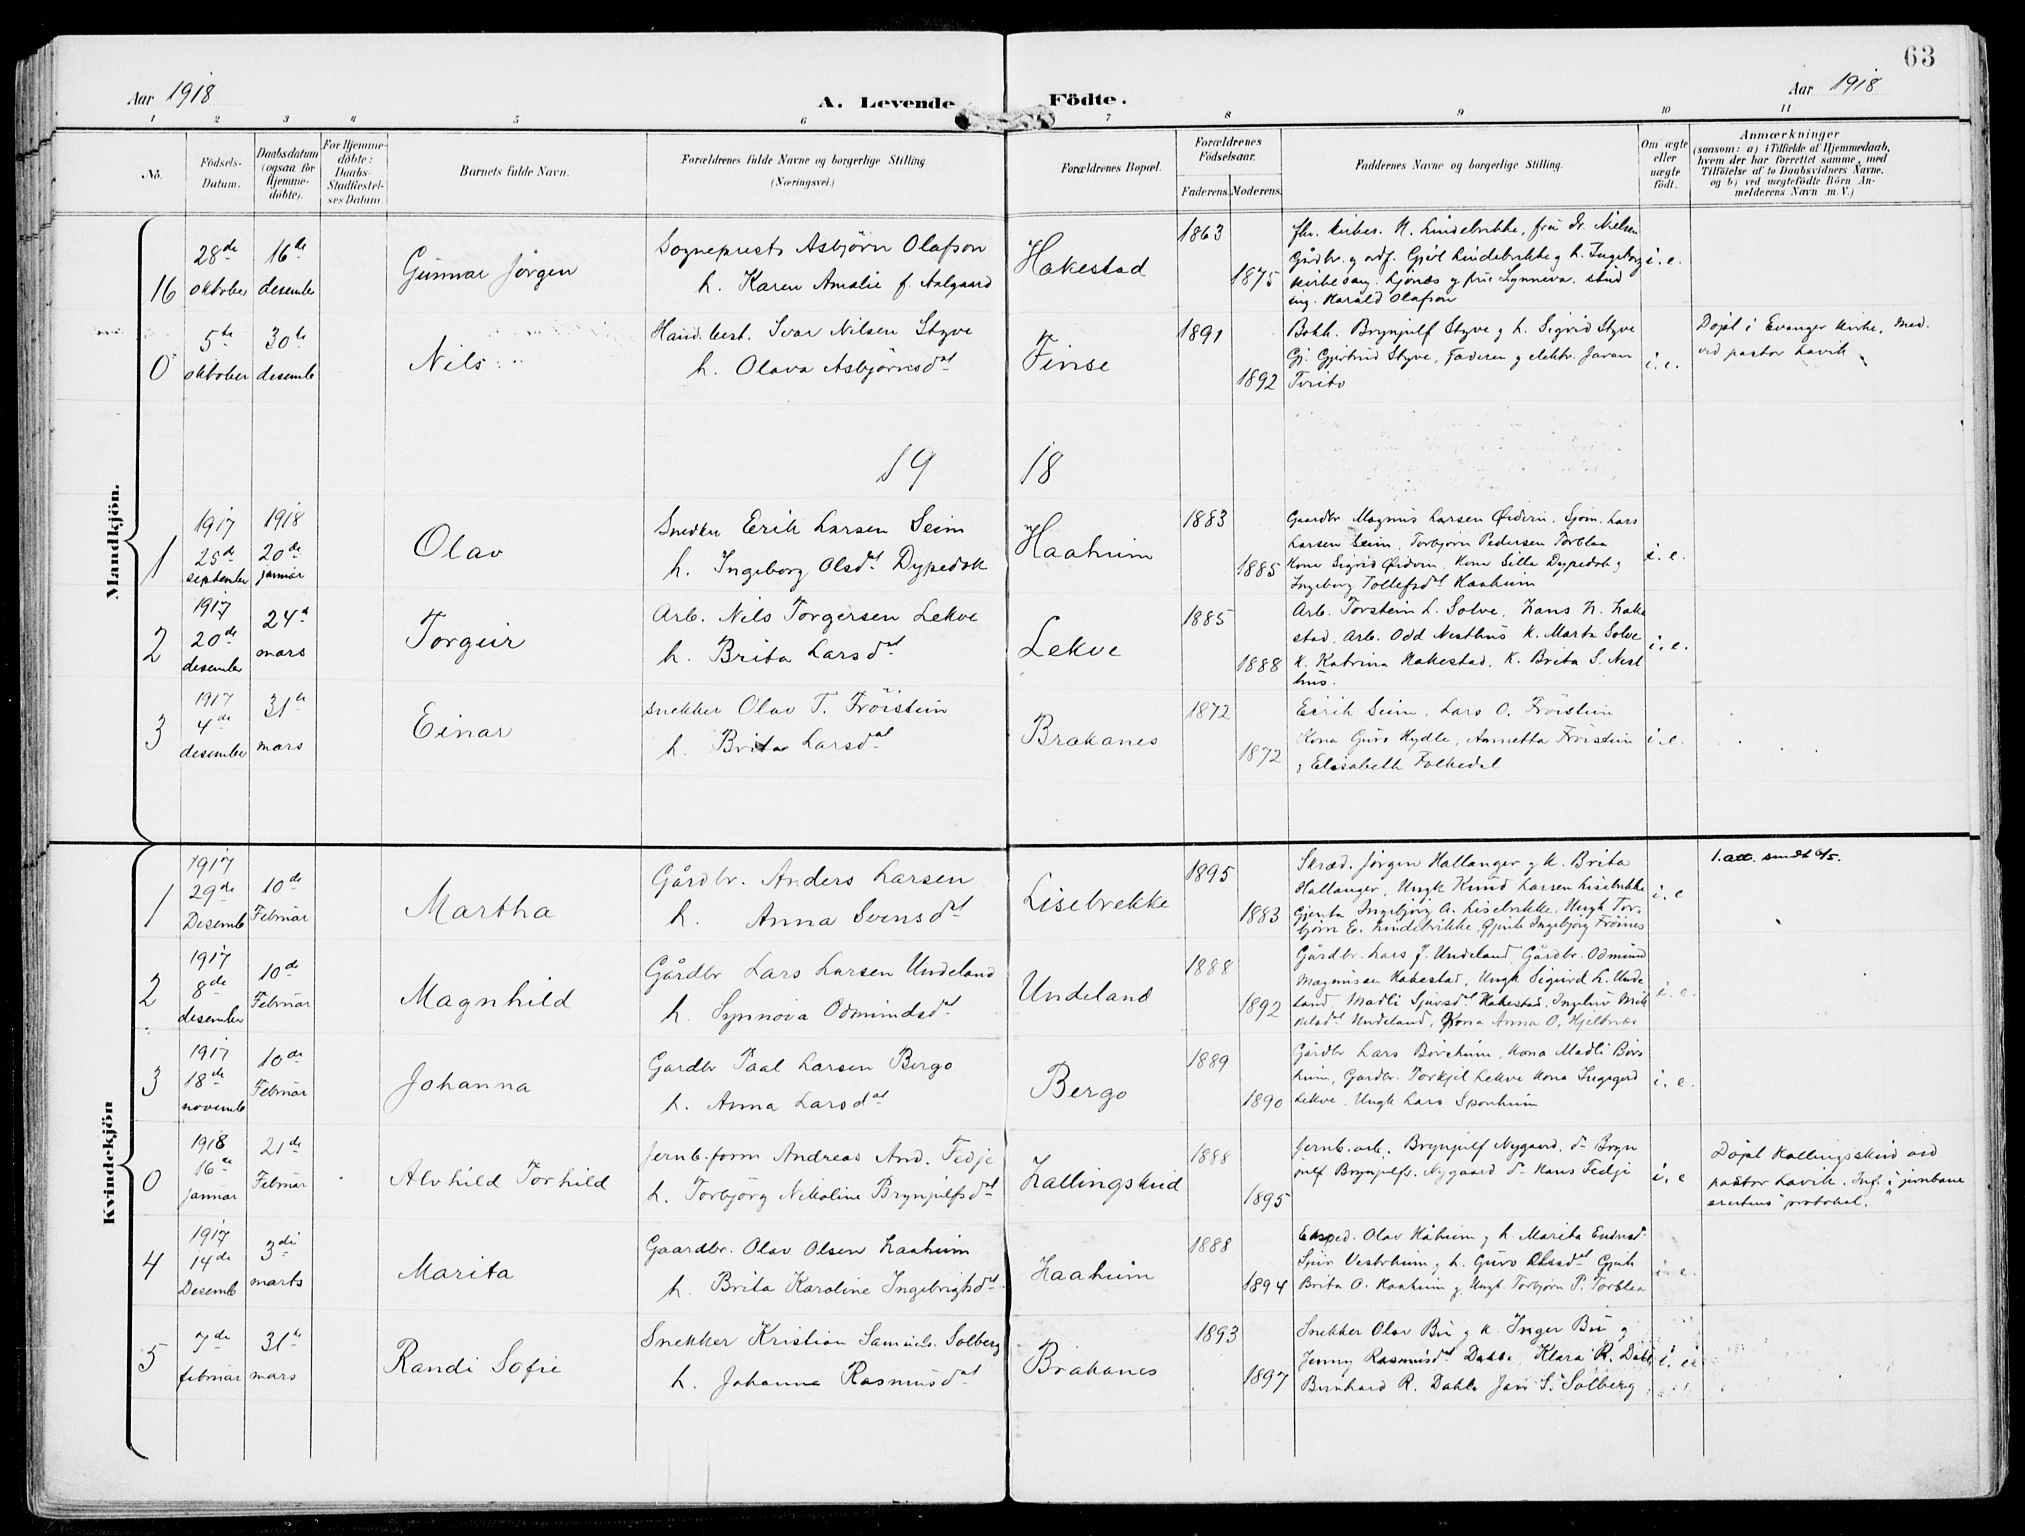 63
Aar 1918
A. Levende Födte.
Aar 1918
1 2 3 4 5 6 7 8 9 10 11
No.
Födsels-
Datum.
Daabsdatum
(ogsaa for
Hjemme-
döbte).
For Hjemme-
döbte:
Daabs-
Stadfæstel-
ses Datum
Barnets fulde Navn.
Forældrenes fulde Navne og borgerlige Stilling
(Næringsvei.)
Forældrenes Bopæl.
Forældrenes
Födselsaar.
Faderens. Moderens.
Faddernes Navne og borgerlige Stilling.
Om ægte
eller
uægte
födt.
Anmærkninger
(saasom: a) i Tilfælde af Hjemmedaab,
hvem der har forrettet samme, med
Tilföielse af to Daabsvidners Navne.
og b) ved uægtefödte Börn An-
melderens Navn m. V.)
Mandkjön.
16
28de
oktober
16de
desember
Gunnar Jørgen
Sogneprest Asbjörn Olafson
h. Karen Amalie f. Aalgaard
Hakestad
1863
1875
fhv. kirkes. N. Lindebrekke, fru Dr. Nielsen
Gårdbr. og ordf. Gjert Lindebrekke g h. Ingeborg
kirkesang. Ljönes g frue Synneva, stud
ing. Harald Olafson
i. e.
0
5te
oktober
30te
desemb
Nils
Hand. best. Ivar Nilsen Styve
h. Olava Asbjörnsdat
Finse
1891
1892
Bokh. Brynjulf Styve g h. Sigrid Styve
Gj. Gjertrud Styve, Faderen g elektr. Johan
Tveito
i. e.
Döpt i Evanger kirke. Med.
ved pastor Lavik
1918
1
1917
25de
september
1918
20de
januar
Olav
Snedker Erik Larsen Seim
h. Ingeborg Olsdat Dypedok
Haaheim
1883
1885
Gaardbr Magnus Larsen Øidvin. Sjöm. Lars
Larsen Seim, Torbjörn Pedersen Torblaa
Kona Sigrid Øidvin, Kona Silla Dypedok g
Ingeborg Tollefsdat Haaheim
i. e.
2
1917
20de
desember
24d
mars
Torgeir
Arb. Nils Torgersen Lekve
h. Brita Larsdat
Lekve
1885
1888
Arb. Torstein L. Solve, Hans N. Hake
stad, Arb. Odd Nesthus k. Marta Solve
k. Katrina Hakestad, k. Brita S. Nest
hus.
i. e.
3
1917
4de
desember
31te
mars
Einar
snekker Olav T. Fröistein
h. Brita Larsdat
Brakanes
1872
1872
Eirik Seim, Lars O. Fröistein
Kona Guro Hydle, Annetta Fröistein
g Elisabeth Folkedal
i. e.
Kvindekjön
1
1917
29de
Desemb
10de
Februar
Martha
Gårdbr. Anders Larsen
h. Anna Svensdat
Lisebrekke
1895
1883
Skræd. Jörgen Hallanger g k. Brita
Hallanger, Ungk Knud Larsen Lisebrekke
Gjenta Ingebjörg A. Lisebrekke, Ungk Tor-
björn E. Lindebrekke, Gjente Ingebjörg Fröines
i. e
1. att. sendt 6/5.
2
1917
8de
desember
10de
Februar
Magnhild
Gårdbr Lars Larsen Undeland
h. Synnöva Odmundsdat
Undeland
1888
1892
Gårdbr. Lars J. Undeland Gårdbr. Odmund
Magnussen Hakestad, Ungk Sigurd L. Unde
land, Madli Sjursdat Hakestad, Ingeleiv Mik
kelsdat Undeland, Kona Anna O. Hjeltnæs
i. e.
3
1917
18de
novemb
10de
Februar
Johanna
Gardbr Paal Larsen Bergo
h. Anna Larsdat
Bergo
1889
1890
Gårdbr Lars Börsheim, kona Madli Börs
heim, Gardbr. Torkjel Lekve kona Ingegerd
Lekve, Ungk Lars Sponheim
i. e.
0
1918
16de
januar
21de
Februar
Alvhild Torhild
Jernb. form. Andreas And. Fedje
h. Torbjörg Nikoline Brynjulfsdat
Hallingskeid
1888
1895
Jernb. arb. Brynjulf Nygaard, do Bryn
julf Brynjulfs. Nygaard do Hans Fedje
i. e
Döpt Hallingskeid ved
pastor Lavik. Inf. i jernbane
prestens protokol.
4
1917
14de
Desemb
3di
marts
Marita
Gaardbr. Olav Olsen Haaheim
h. Brita Karoline Ingebrigtsdat
Haaheim
1888
1894
Eksped. Olav Håheim g h. Marita
Sjur Vestrheim g h. Guro Olsdat Gjente
Brita O. Haaheim g Ungk. Torbjörn P. Torblaa
i. e.
5
7de
februar
31te
mars
Randi Sofie
Snekker Kristian Samuels. Solberg
h. Johanne Rasmusdat
Brakanes
1893
1897
Snekker Olav Bu g k. Inger Bu g
Jenny Rasmusdat Dahle, Klara R. Dahle
Bernhard R. Dahle Jan S. Solberg
i. e.